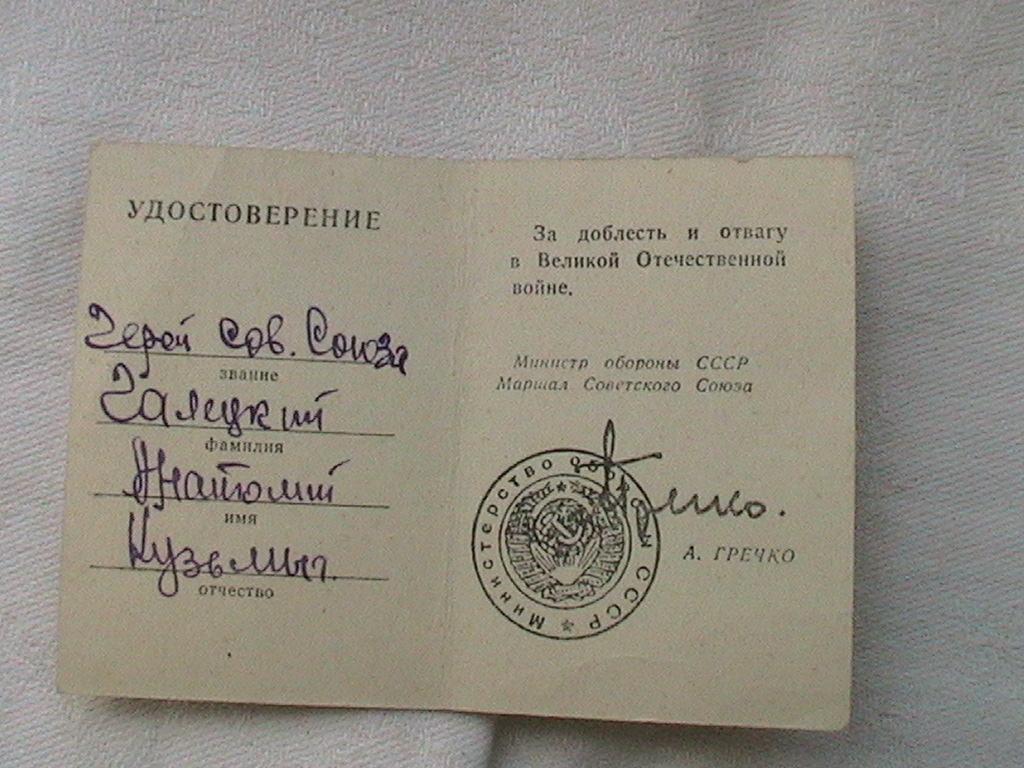 УДОСТОВЕРЕНИЕ
Герой Сов. Союза
звание
Галецкий
фамилия
Анатолий
имя
Кузьмич.
отчество
За доблесть и отвагу
в Великой Отечественной
войне.
Министр обороны СССР
Маршал Советского Союза
Министерство Обороны СССР
А. ГРЕЧКО